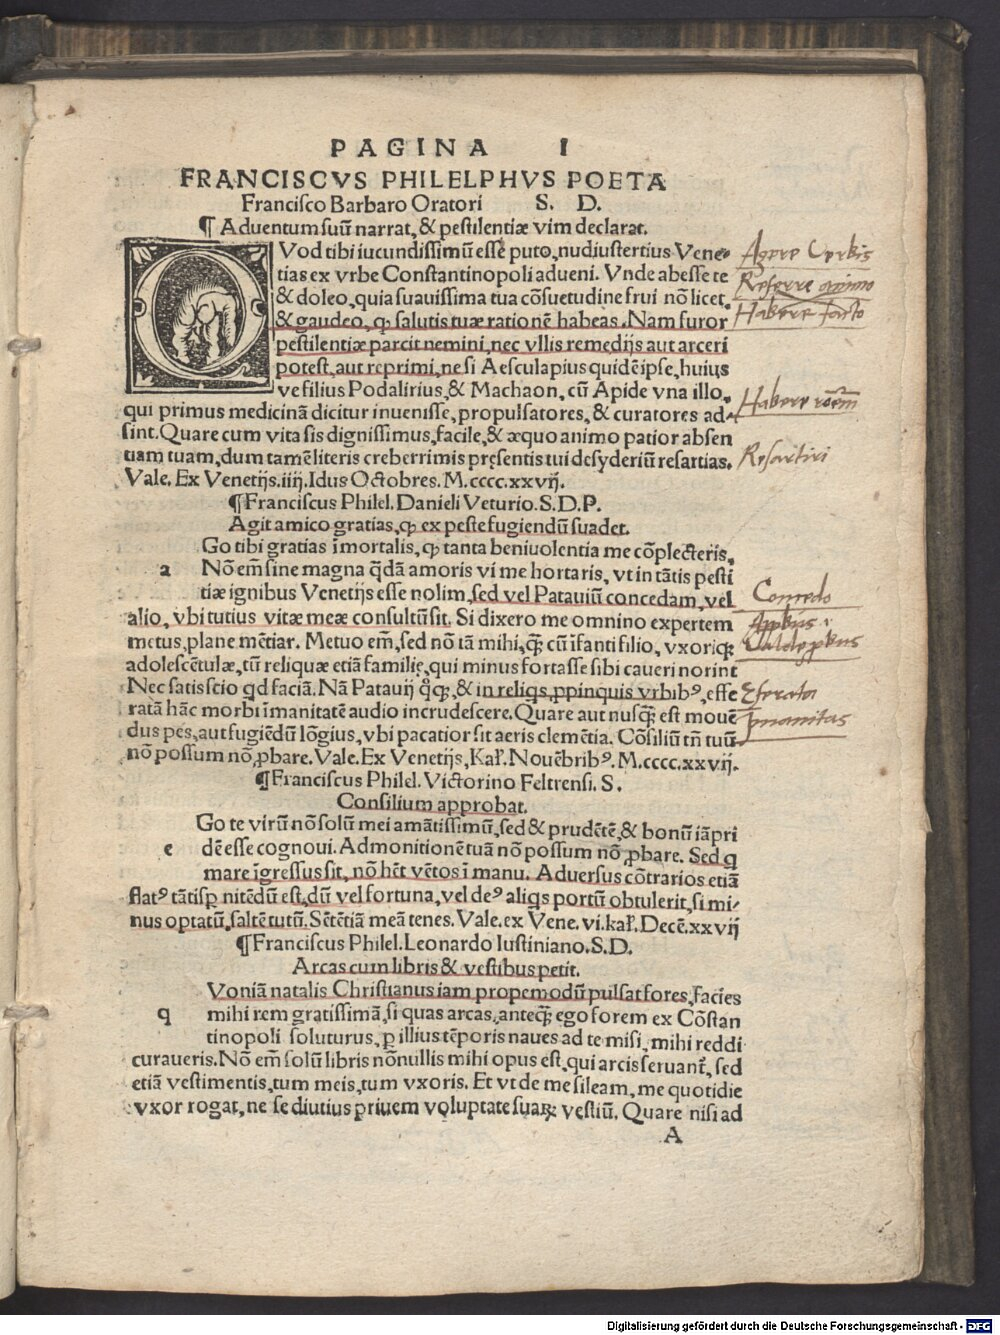 PAGINA I
FRANCISCVS PHILELPHVS POETA
Francisco Barbaro Oratori S. D.
¶ Aduentum suū narrat, & pestilentiæ vim declarat.
QVod tibi iucundissimū esse puto, nudiustertius Vene-
tias ex vrbe Constantinopoli adueni. Vnde abesse te
& doleo, quia suauissima tua cōsuetudine frui nō licet,
& gaudeo, ꝙ salutis tuæ rationē habeas. Nam furor
pestilentiæ parcit nemini, nec vllis remedijs aut arceri
potest, aut reprimi, ne si Aesculapius quidē ipse, huius
ve filius Podalirius, & Machaon, cū Apide vna illo,
qui primus medicinā dicitur inuenisse, propulsatores, & curatores ad-
sint. Quare cum vita sis dignissimus, facile, & æquo animo patior absen
tiam tuam, dum tamē literis creberrimis pręsentis tui desyderiū resartias.
Vale. Ex Venetijs. iiij. Idus Octobres. M.cccc.xxvij.
¶Franciscus Philel. Danieli Veturio. S.D.P.
Agit amico gratias, ꝙ ex peste fugiendū suadet.
Go tibi gratias īmortalis, ꝙ tanta beniuolentia me cōplecteris,
a Nō em̄ sine magna q̄dā amoris vi me hortaris, vt in tātis pesti
tiæ ignibus Venetijs esse nolim, sed vel Patauiū concedam, vel
alio, vbi tutius vitæ meæ consultū sit. Si dixero me omnino expertem
metus, plane mētiar. Metuo em̄, sed nō tā mihi, q̄ꝫ cū īfanti filio, vxoriqꝫ
adolescētulæ, tū reliquæ etiā familię, qui minus fortasse sibi caueri norint
Nec satis scio qd faciā. Nā Patauij q̊qꝫ, & in reliqs ꝓpinquis vrbibꝰ, effe
ratā hāc morbi īmanitatē audio incrudescere. Quare aut nusq̄ꝫ est mouē
dus pes, aut fugiēdū lōgius, vbi pacatior sit aeris clemētia. Cōsiliū tn̄ tuū
nō possum nō ꝓbare. Vale. Ex Venetijs, Kal. Nouēbribꝰ. M.cccc.xxvij.
¶Franciscus Philel. Victorino Feltrensi. S.
Consilium approbat.
Go te virū nō solū mei amātissimū, sed & prudētē, & bonū iāpri
e dē esse cognoui. Admonitionē tuā nō possum nō ꝓbare. Sed q
mare īgressus sit, nō hēt vētos ī manu. Aduersus cōtrarios etiā
flatꝰ tātisꝑ nitēdū est, dū vel fortuna, vel deꝰ aliqs portū obtulerit, si mi-
nus optatū, saltē tutū. Sētētiā meā tenes. Vale. ex Vene. vi. kal. Decē. xxvij
¶Franciscus Philel. Leonardo Iustiniano. S.D.
Arcas cum libris & vestibus petit.
Voniā natalis Christianus iam propemodū pulsat fores, facies
q mihi rem gratissimā, si quas arcas, anteq̄ꝫ ego forem ex Cōstan
tinopoli soluturus, ꝑ illius tēporis naues ad te misi, mihi reddi
curaueris. Nō em̄ solū libris nōnullis mihi opus est, qui arcis seruant᷑, sed
etiā vestimentis, tum meis, tum vxoris. Et vt de me sileam, me quotidie
vxor rogat, ne se diutius priuem voluptate suaꝝ vestiū. Quare nisi ad
A
Agere Verbis
Referre animo
Habere facto
Habere rōēm
Resartiri
Concedo
Efferata
īmanitas
Digitalisierung gefördert durch die Deutsche Forschungsgemeinschaft - DFG